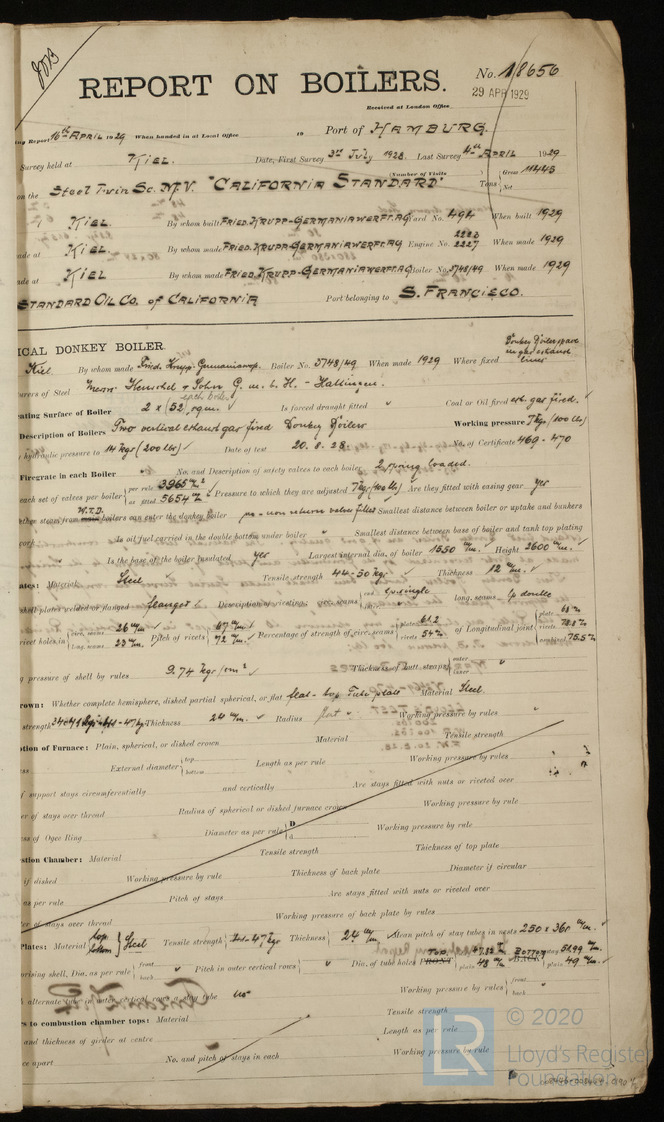 REPORT ON BOILERS.
No. 18656
29 APR 1929
Received at London Office
Report 16th APRIL 1929 When handed in at Local Office 19 Port of HAMBURG.
Survey held at KIEL. Date, First Survey 3rd July 1928. Last Survey 4th APRIL 1929
(Number of Visits
on the Steel Twin Sc. M.V. "CALIFORNIA STANDARD" Tons Gross 11443 Net
KIEL. By whom built FRIED. KRUPP-GERMANIAWERFT. AG Yard No. 494 When built 1929
KIEL. By whom made FRIED. KRUPP-GERMANIAWERFT. AG Engine No. 2227 When made 1929
made at KIEL By whom made FRIED. KRUPP-GERMANIAWERFT. AG Boiler No. 5748/49 When made 1929
STANDARD OIL Co. of CALIFORNIA Port belonging to S. FRANCISCO.
ICAL DONKEY BOILER.
Kiel By whom made Boiler No. 5748/49 When made 1929 Where fixed
of Steel Messrs Henschel & Sohn G.m.b.H. - Hattingen.
each boiler
ating Surface of Boiler 2 x (52) sqm. Is forced draught fitted Coal or Oil fired exh. gas fired.
Description of Boilers Two vertical exhaust gas fired Donkey Boilers Working pressure 7 kgs (100 lbs)
hydraulic pressure to 14 kgs (200 lbs) Date of test 20. 8. 28. No. of Certificate 469 - 470
Firegrate in each Boiler No. and Description of safety valves to each boiler 2 spring loaded.
each set of valves per boiler per rule 3965 as fitted 5654 Pressure to which they are adjusted 7 kgs (100 lbs) Are they fitted with easing gear yes
W.T.D. boilers can enter the donkey boiler non return valve fitted Smallest distance between boiler or uptake and bunkers
Is oil fuel carried in the double bottom under boiler Smallest distance between base of boiler and tank top plating
Is the base of the boiler insulated yes Largest internal dia. of boiler 1550 m/m. Height 2600 m/m.
Material Steel Tensile strength 44-50 kgs Thickness 12 m/m.
shell plates welded or flanged flanged Description of riveting: circ. seams single long. seams double
rivet holes in circ. seams 26 m/m long. seams 23 m/m Pitch of rivets 67 m/m 72 m/m Percentage of strength of circ. seams plate 61.2 rivets 54 of Longitudinal joint plate 68 rivets combined 75.5
pressure of shell by rules 9.74 kgs/cm² Thickness of butt straps outer inner
rown: Whether complete hemisphere, dished partial spherical, or flat flat - top Tube plate Material Steel
strength Thickness 24 m/m. Radius flat Working pressure by rules
tion of Furnace: Plain, spherical, or dished crown Material Tensile strength
External diameter top bottom Length as per rule Working pressure by rules
f support stays circumferentially and vertically Are stays fitted with nuts or riveted over
er of stays over thread Radius of spherical or dished furnace crown Working pressure by rule
ss of Ogee Ring Diameter as per rule D d Working pressure by rule
stion Chamber: Material Tensile strength Thickness of top plate
if dished Working pressure by rule Thickness of back plate Diameter if circular
as per rule Pitch of stays Are stays fitted with nuts or riveted over
er of stays over thread Working pressure of back plate by rules
Plates: Material top bottom Steel Tensile strength Thickness 24 m/m Mean pitch of stay tubes in nests 250 x 360 m/m.
prising shell, Dia. as per rule front back Pitch in outer vertical rows Dia. of tube holes TOP FRONT plain 48 m/m BOTTOM BACK stay 51.99 m/m plain 49 m/m
alternate tube in outer vertical rows a stay tube no Working pressure by rules front back
rs to combustion chamber tops: Material Tensile strength
and thickness of girder at centre Length as per rule
ce apart No. and pitch of stays in each Working pressure by rule
LR
© 2020
Lloyd's Register
Foundation